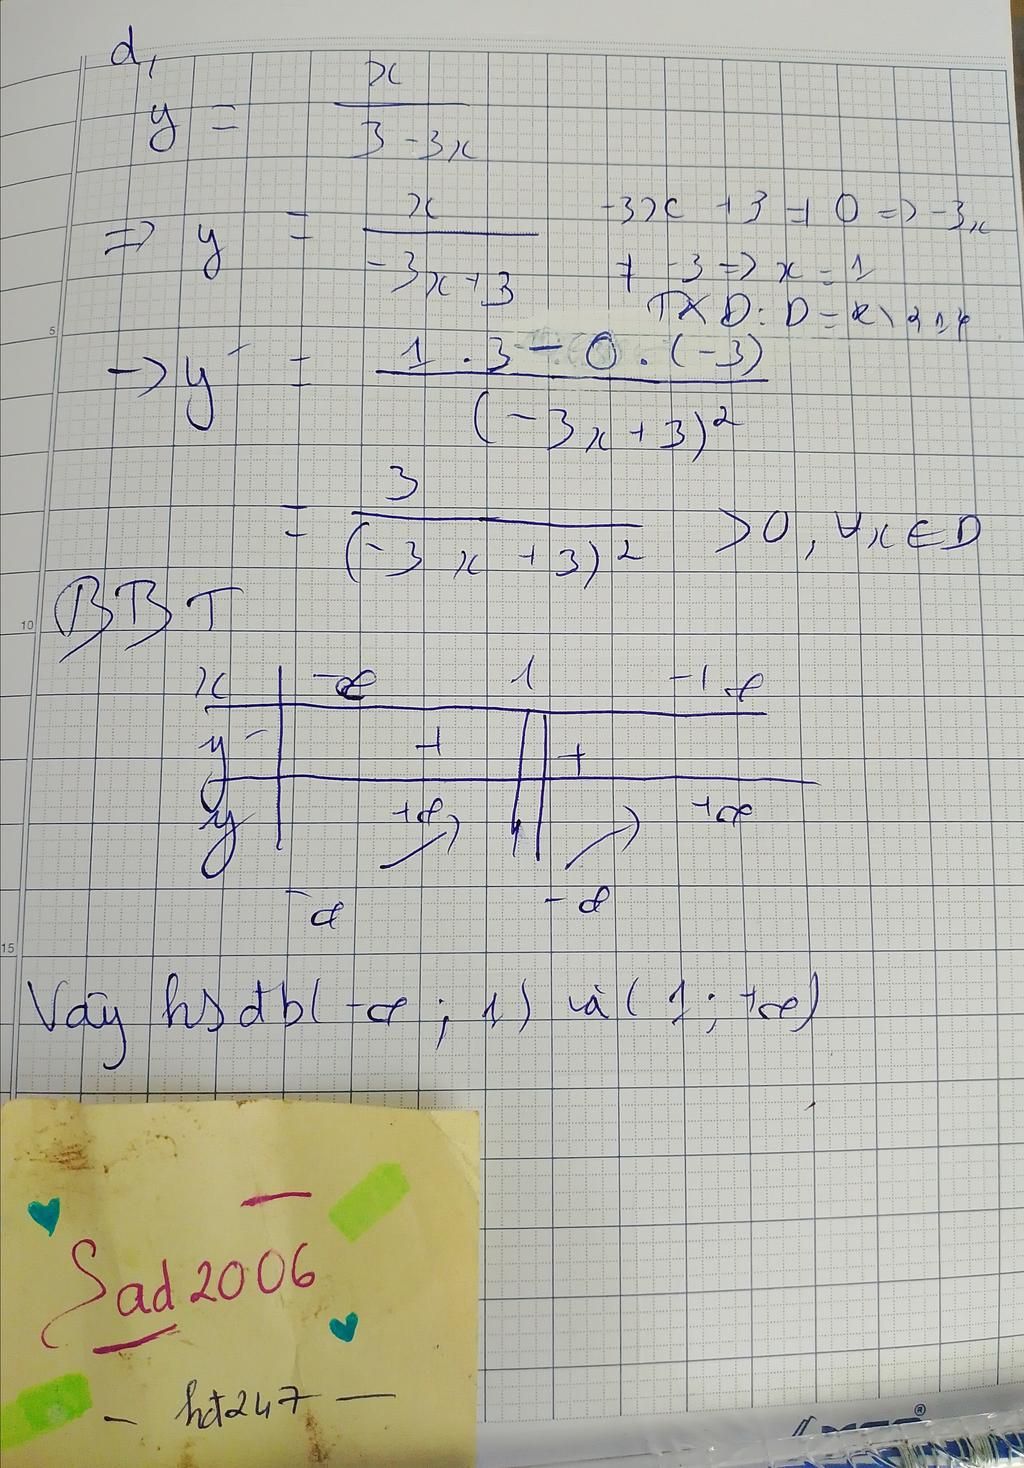 d,
y = x / (3 - 3x)
=> y = x / (-3x + 3)
-3x + 3 ≠ 0 => -3x
≠ -3 => x = 1
TXD: D = R \ {1}
-> y' = (1 . 3 - 0 . (-3)) / (-3x + 3)²
= 3 / (-3x + 3)² > 0, ∀x ∈ D
BBT
x -∞ 1 +∞
y' + +
y +∞ +∞
-∞ -∞
Vậy hs đb (-∞ ; 1) và (1 ; +∞)
Sad 2006
- hđ247 -
5
10
15